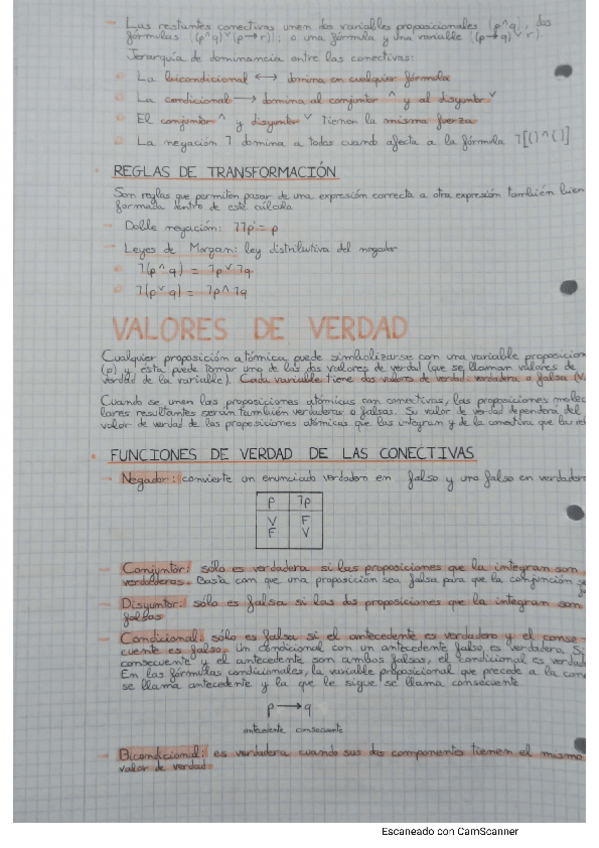 - Las restantes conectivas unen dos variables proposicionales (p^q), dos
fórmulas [(p^q)^v(p→r)], o una fórmula y una variable [(p→q)^v r].
Jerarquía de dominancia entre las conectivas:
La bicondicional ↔ domina en cualquier fórmula
La condicional → domina al conjuntor ^ y al disyuntor v
El conjuntor ^ y disyuntor v tienen la misma fuerza
La negación ꓶ domina a todas cuando afecta a la fórmula ꓶ[()^()]
REGLAS DE TRANSFORMACIÓN
Son reglas que permiten pasar de una expresión correcta a otra expresión también bien
formada dentro de este cálculo
- Doble negación: ꓶꓶp = p
- Leyes de Morgan: ley distributiva del negador
ꓶ(p^q) = ꓶp v ꓶq
ꓶ(p v q) = ꓶp ^ ꓶq
VALORES DE VERDAD
Cualquier proposición atómica puede simbolizarse con una variable proposicion
(p) y ésta puede tomar uno de los dos valores de verdad (que se llaman valores de
verdad de la variable). Cada variable tiene dos valores de verdad: verdadera o falsa (V
Cuando se unen las proposiciones atómicas con conectivas, las proposiciones molec
lares resultantes serán también verdaderas o falsas. Su valor de verdad dependerá del
valor de verdad de las proposiciones atómicas que las integran y de la conectiva que las
FUNCIONES DE VERDAD DE LAS CONECTIVAS
- Negador: convierte un enunciado verdadero en falso y uno falso en verdadero
p ꓶp
V F
F V
- Conjuntor: sólo es verdadera si las proposiciones que la integran son
verdaderas. Basta con que una proposición sea falsa para que la conjunción
- Disyuntor: sólo es falsa si las dos proposiciones que la integran son
falsas
- Condicional: sólo es falsa si el antecedente es verdadero y el conse-
cuente es falso. Un condicional con un antecedente falso, es verdadero. Si
consecuente y el antecedente son ambos falsos, el condicional es verdad
En las fórmulas condicionales, la variable proposicional que precede a la con
se llama antecedente y la que le sigue se llama consecuente.
p → q
antecedente consecuente
- Bicondicional: es verdadera cuando sus dos componentes tienen el mismo
valor de verdad.
Escaneado con CamScanner